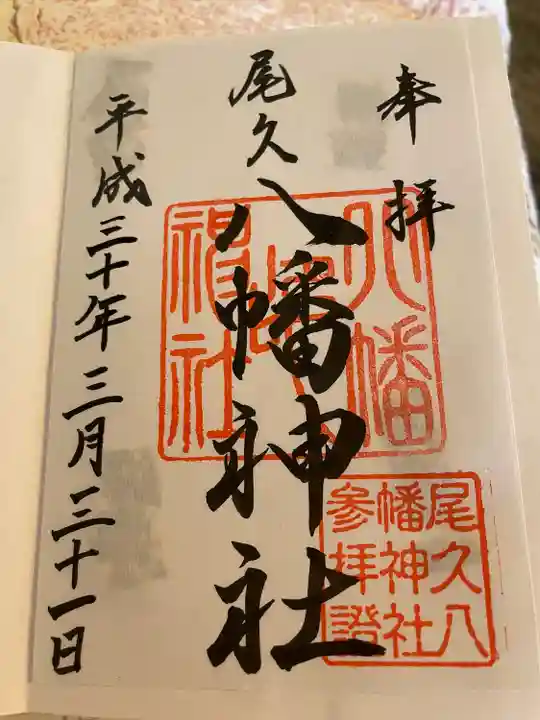 奉拝
尾久八幡神社
平成三十年三月三十一日
尾久八
幡神社
参拝證